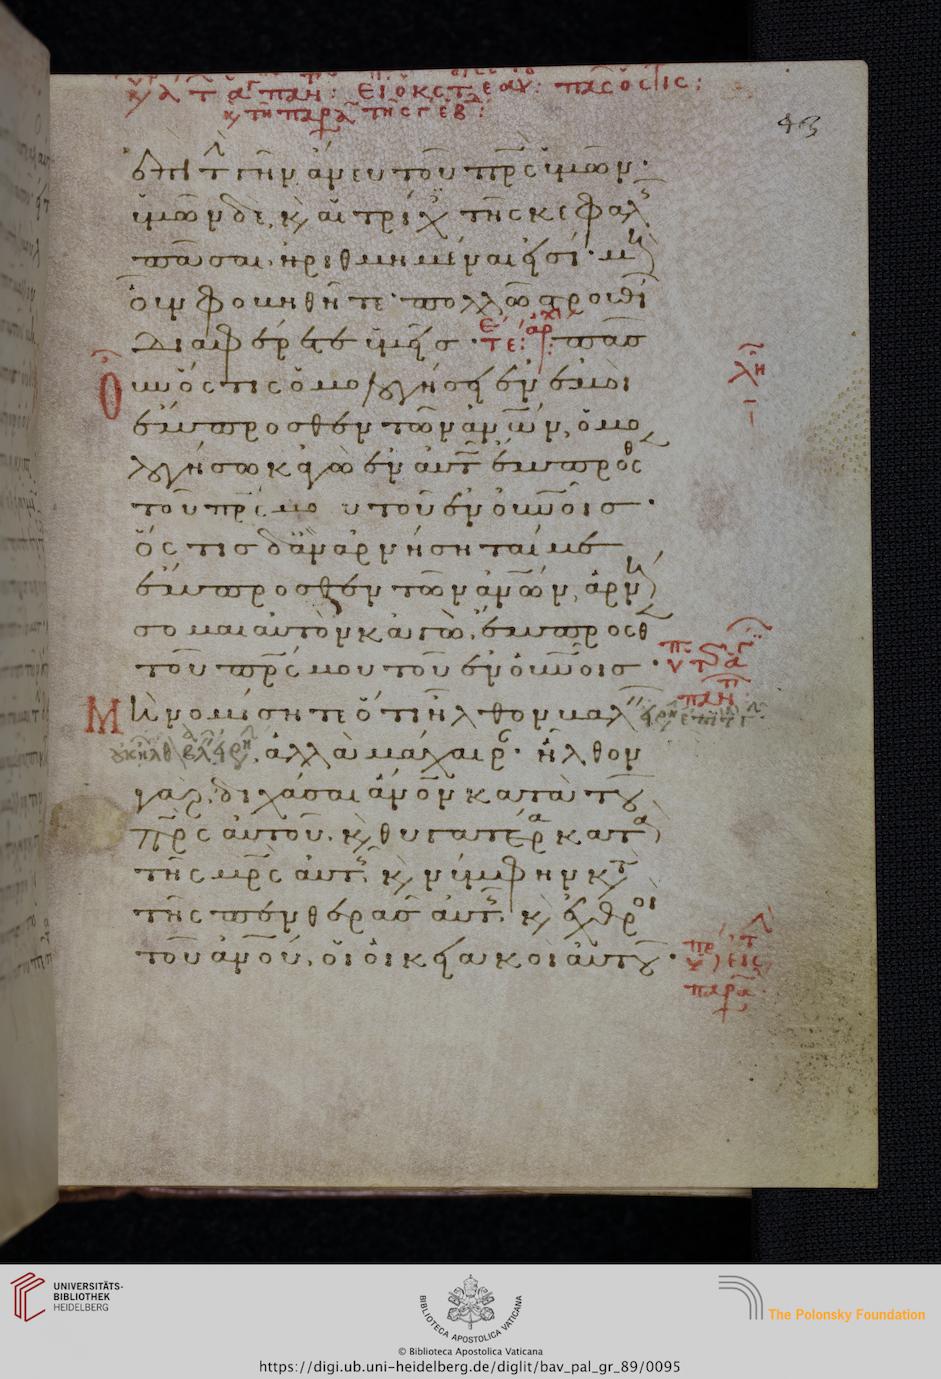 43
ἐπὶ τ γῆν ἄνευ τοῦ πρς ὑμῶν·
ὑμῶν δὲ κ αἱ τρίχ τῆς κεφαλ
πᾶσαι, ἠριθμημέναι εἰσί· μὴ
οὖν φοβηθῆτε· πολλῶ στρουθί
διαφέρετε ὑμεῖσ· τε: πᾶσ
Ὁστις ὁμολογήσει ἐν ἐμοὶ
ἔμπροσθεν τῶν ἀνων, ὁμο
λογήσω κἀγὼ ἐν αὐτ ἔμπροσθ
τοῦ πρς μου τοῦ ἐν οὐνοις·
ὅστισ δ' ἂν ἀρνήσηταί με
ἔμπροσθεν τῶν ἀνων, ἀρν
σομαι αὐτὸν κἀγὼ, ἔμπροσθ
τοῦ πρς μου τοῦ ἐν οὐνοισ·
Μὴ νομίσητε ὅτι ἦλθον βαλ
ἀλλὰ μάχαιρ· ἦλθον
γὰρ, διχάσαι ἀνον κατὰ τοῦ
πρς αὐτοῦ, κ θυγατέρα κατὰ
τῆς μρς αὐτῆς κ νύμφην κτ
τῆς πενθερᾶσ αὐτῆς κ ἐχθροὶ
τοῦ ἀνου, οἱ οἰκειακοὶ αὐτοῦ·
UNIVERSITÄTS-
BIBLIOTHEK
HEIDELBERG
BIBLIOTECA APOSTOLICA VATICANA
The Polonsky Foundation
© Biblioteca Apostolica Vaticana
https://digi.ub.uni-heidelberg.de/diglit/bav_pal_gr_89/0095